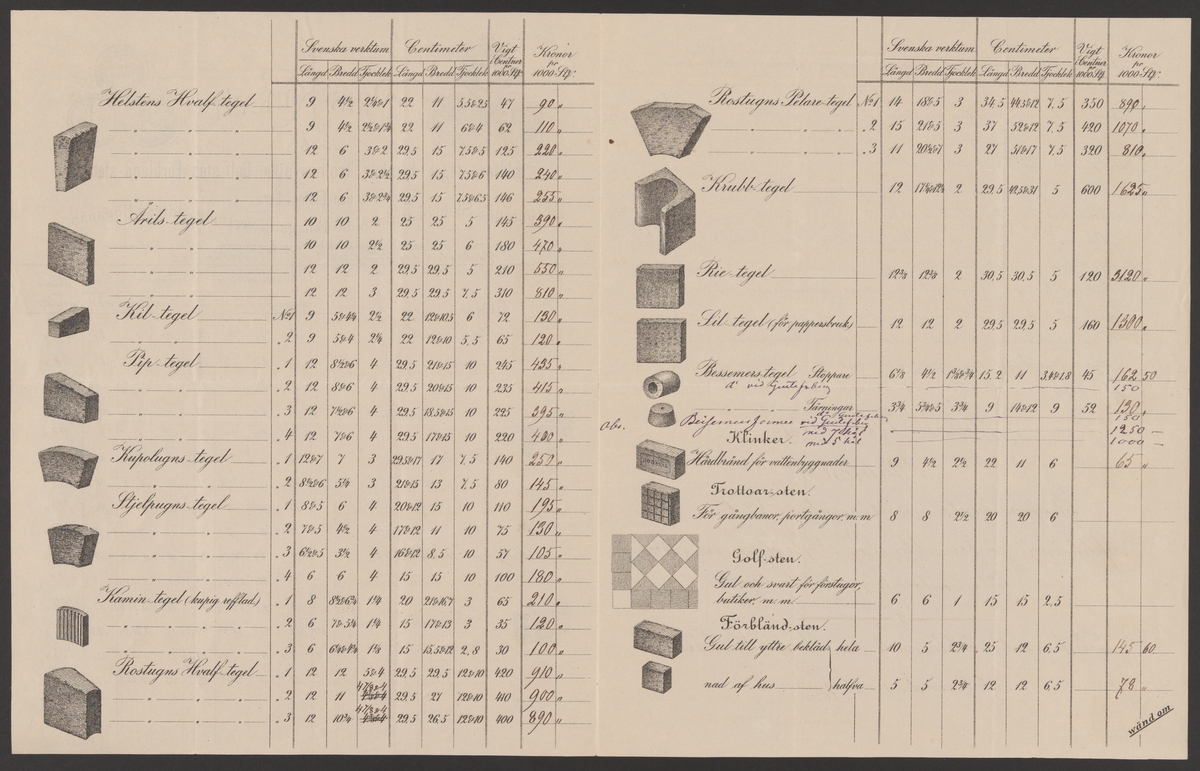 Svenska verktum Centimeter Vigt i Centner pr 1000 St. Kronor pr 1000 St.
Längd Bredd Tjocklek Längd Bredd Tjocklek
Helstens Hvalf-tegel 9 4½ 22 11 5.5&2.5 47 90 "
9 4½ 22 11 6&4 62 110 "
12 6 3&2 29,5 15 7,5&5 125 220 "
12 6 3&2½ 29,5 15 7,5&6 140 240 "
12 6 3&2¾ 29,5 15 7,5&6,5 146 255 "
Ärils-tegel 10 10 2 25 25 5 145 390 "
10 10 2½ 25 25 6 180 470 "
12 12 2 29,5 29,5 5 210 550 "
12 12 3 29,5 29,5 7,5 310 810 "
Kil-tegel No 1 9 2½ 22 12&10,5 6 72 130 "
" 2 9 5&4 2¼ 22 12&10 5,5 65 120 "
Pip-tegel " 1 12 8½&6 4 29,5 21&15 10 245 435 "
" 2 12 8&6 4 29,5 20&15 10 235 415 "
" 3 12 7½&6 4 29,5 18,5&15 10 225 395 "
" 4 12 7&6 4 29,5 17&15 10 220 400 "
Kupolugns-tegel " 1 12&7 7 3 29,5&17 17 7,5 140 250 "
" 2 8½&6 5¼ 3 21&15 13 7,5 80 145 "
Stjelpugns-tegel " 1 8&5 6 4 20&12 15 10 110 195 "
" 2 7&5 4½ 4 17&12 11 10 75 130 "
" 3 6½&5 3½ 4 16&12 8,5 10 57 105 "
" 4 6 6 4 15 15 10 100 180 "
Kamin-tegel (kupig refflad) " 1 8 1¼ 20 21&16,7 3 65 210 "
" 2 6 7&5¼ 1¼ 15 17&13 3 35 120 "
" 3 6 1¼ 15 15,5&12 2,8 30 100 "
Rostugns Hvalf-tegel " 1 12 12 5&4 29,5 29,5 12&10 420 910 "
" 2 12 11 4 7/8&4 29,5 27 12&10 410 900 "
" 3 12 10¾ 4 7/8&4 29,5 26,5 12&10 400 890 "
Svenska verktum Centimeter Vigt i Centner pr 1000 St. Kronor pr 1000 St.
Längd Bredd Tjocklek Längd Bredd Tjocklek
Rostugns Pelare-tegel No 1 14 18&5 3 34,5 44,5&12 7,5 350 890 "
" 2 15 21&5 3 37 52&12 7,5 420 1070 "
" 3 11 3 27 51&17 7,5 320 810 "
Krubb-tegel 12 2 29,5 42,5&31 5 600 1625 "
Rie-tegel 2 30,5 30,5 5 120 3120 "
Lil-tegel (för pappersbruk) 12 12 2 29,5 29,5 5 160 1300 "
Bessemers-tegel Stoppare 6 1/8 4½ 15,2 11 3,4&1,8 45 162 50
do vid Gustafsberg 150
Tärningar 3¾ 3¾ 9 14&12 9 52 130 "
do Gustafsberg 150
Obs. Bessemersformer vid Gustafsberg
med 7 hål 1250 —
Klinker. med 5 hål 1000 —
Hårdbränd för vattenbyggnader 9 4½ 2½ 22 11 6 65 "
Trottoar-sten.
För gångbanor, portgångar, m.m 8 8 2½ 20 20 6
Golf-sten.
Gul och svart för förstugor,
butiker, m. m. 6 6 1 15 15 2,5
Förbländ-sten.
Gul till yttre bekläd- hela 10 5 2¾ 25 12 6,5 145 60
nad af hus halfva 5 5 2¾ 12 12 6,5 78 "
wänd om